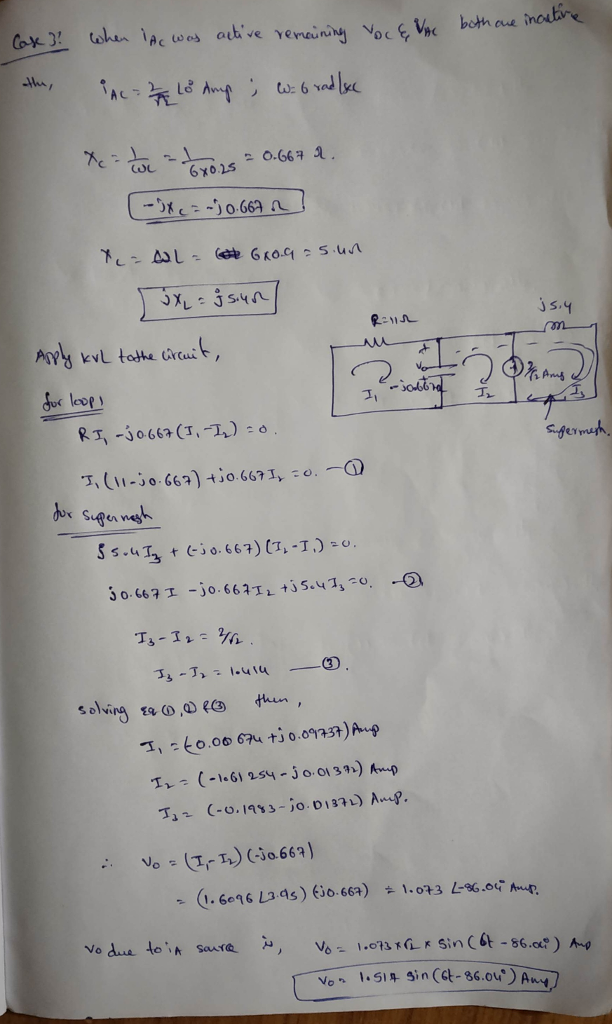 Case 3: When iAC was active remaining VDC & VAC both are inactive
the,
iAC = 2/√2 ∠0° Amp ; ω=6 rad/sec
Xc = 1/ωC = 1/6x0.25 = 0.667 Ω.
-jXc = -j0.667 Ω
XL = ωL = 6x0.9 = 5.4Ω
jXL = j5.4Ω
Apply KVL to the circuit,
R=11Ω
j5.4
+
Vo
-j0.667Ω
2/√2 Amp
I1
I2
I3
Supermesh.
for loop 1
RI1 - j0.667(I1-I2) = 0.
I1(11-j0.667) + j0.667I2 = 0. —①
for Supermesh
j5.4I3 + (-j0.667)(I2-I1) = 0.
j0.667 I - j0.667I2 + j5.4I3 = 0. —②
I3-I2 = 2/√2.
I3-I2 = 1.414 —③.
solving eq ①,② & ③ then,
I1 = (-0.00674 + j0.09737) Amp
I2 = (-1.61254 - j0.01392) Amp
I3 = (-0.1983 - j0.01372) Amp.
∴ Vo = (I1-I2)(-j0.667)
= (1.6096 ∠3.95) (-j0.667) = 1.073 ∠-86.04° Amp.
Vo due to iA source is, Vo = 1.073 x √2 x Sin(6t - 86.04°) Amp
Vo = 1.517 Sin(6t-86.04°) Amp